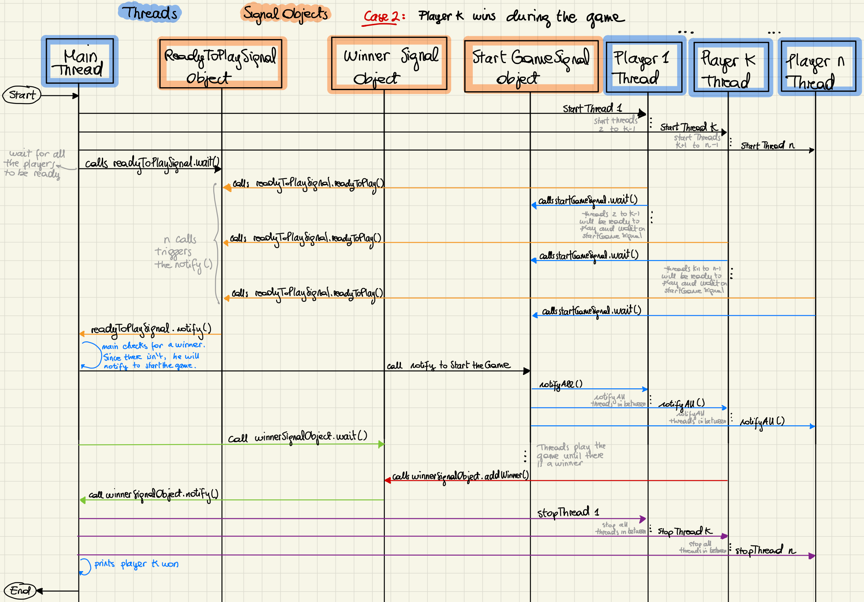 Threads
Signal Objects
Case 2: Player k wins during the game
Main
Thread
ReadyToPlaySignal
Object
Winner Signal
Object
Start GameSignal
Object
Player 1
Thread
...
Player k
Thread
...
Player n
Thread
Start
Start Thread 1
start threads
2 to k-1
Start Thread k
start threads
k+1 to n-1
Start Thread n
wait for all
the players
to be ready
calls readyToPlaySignal.wait()
calls readyToPlaySignal.readyToPlay()
calls startGameSignal.wait()
threads 2 to k-1
will be ready to
play and wait on
startGame Signal
n calls
triggers
the notify()
calls readyToPlaySignal.readyToPlay()
calls startGameSignal.wait()
threads k+1 to n-1
will be ready to
play and wait on
startGame Signal
calls readyToPlaySignal.readyToPlay()
calls startGameSignal.wait()
readyToPlaySignal.notify()
main checks for a winner.
Since there isn't, he will
notify to start the game.
call notify to Start the Game
notifyAll()
notifyAll
threads in between
notifyAll()
notifyAll
threads in between
notifyAll()
call winnerSignalObject.wait()
Threads play the
game until there
is a winner
calls winnerSignalObject.addWinner()
call winnerSignalObject.notify()
stopThread 1
stop all
threads in between
stopThread k
stop all
threads in between
stopThread n
prints player k won
End